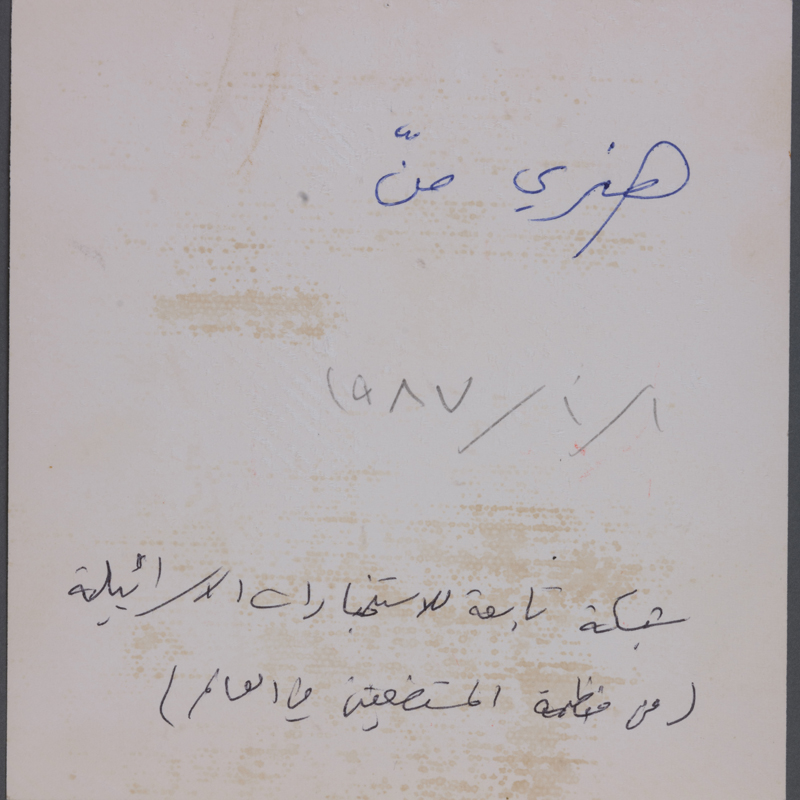 هنري منّ
١٩٨٧/١/١
شبكة تابعة للاستخبارات الاسرائيلية
(من منظمة المستضعفين في العالم)